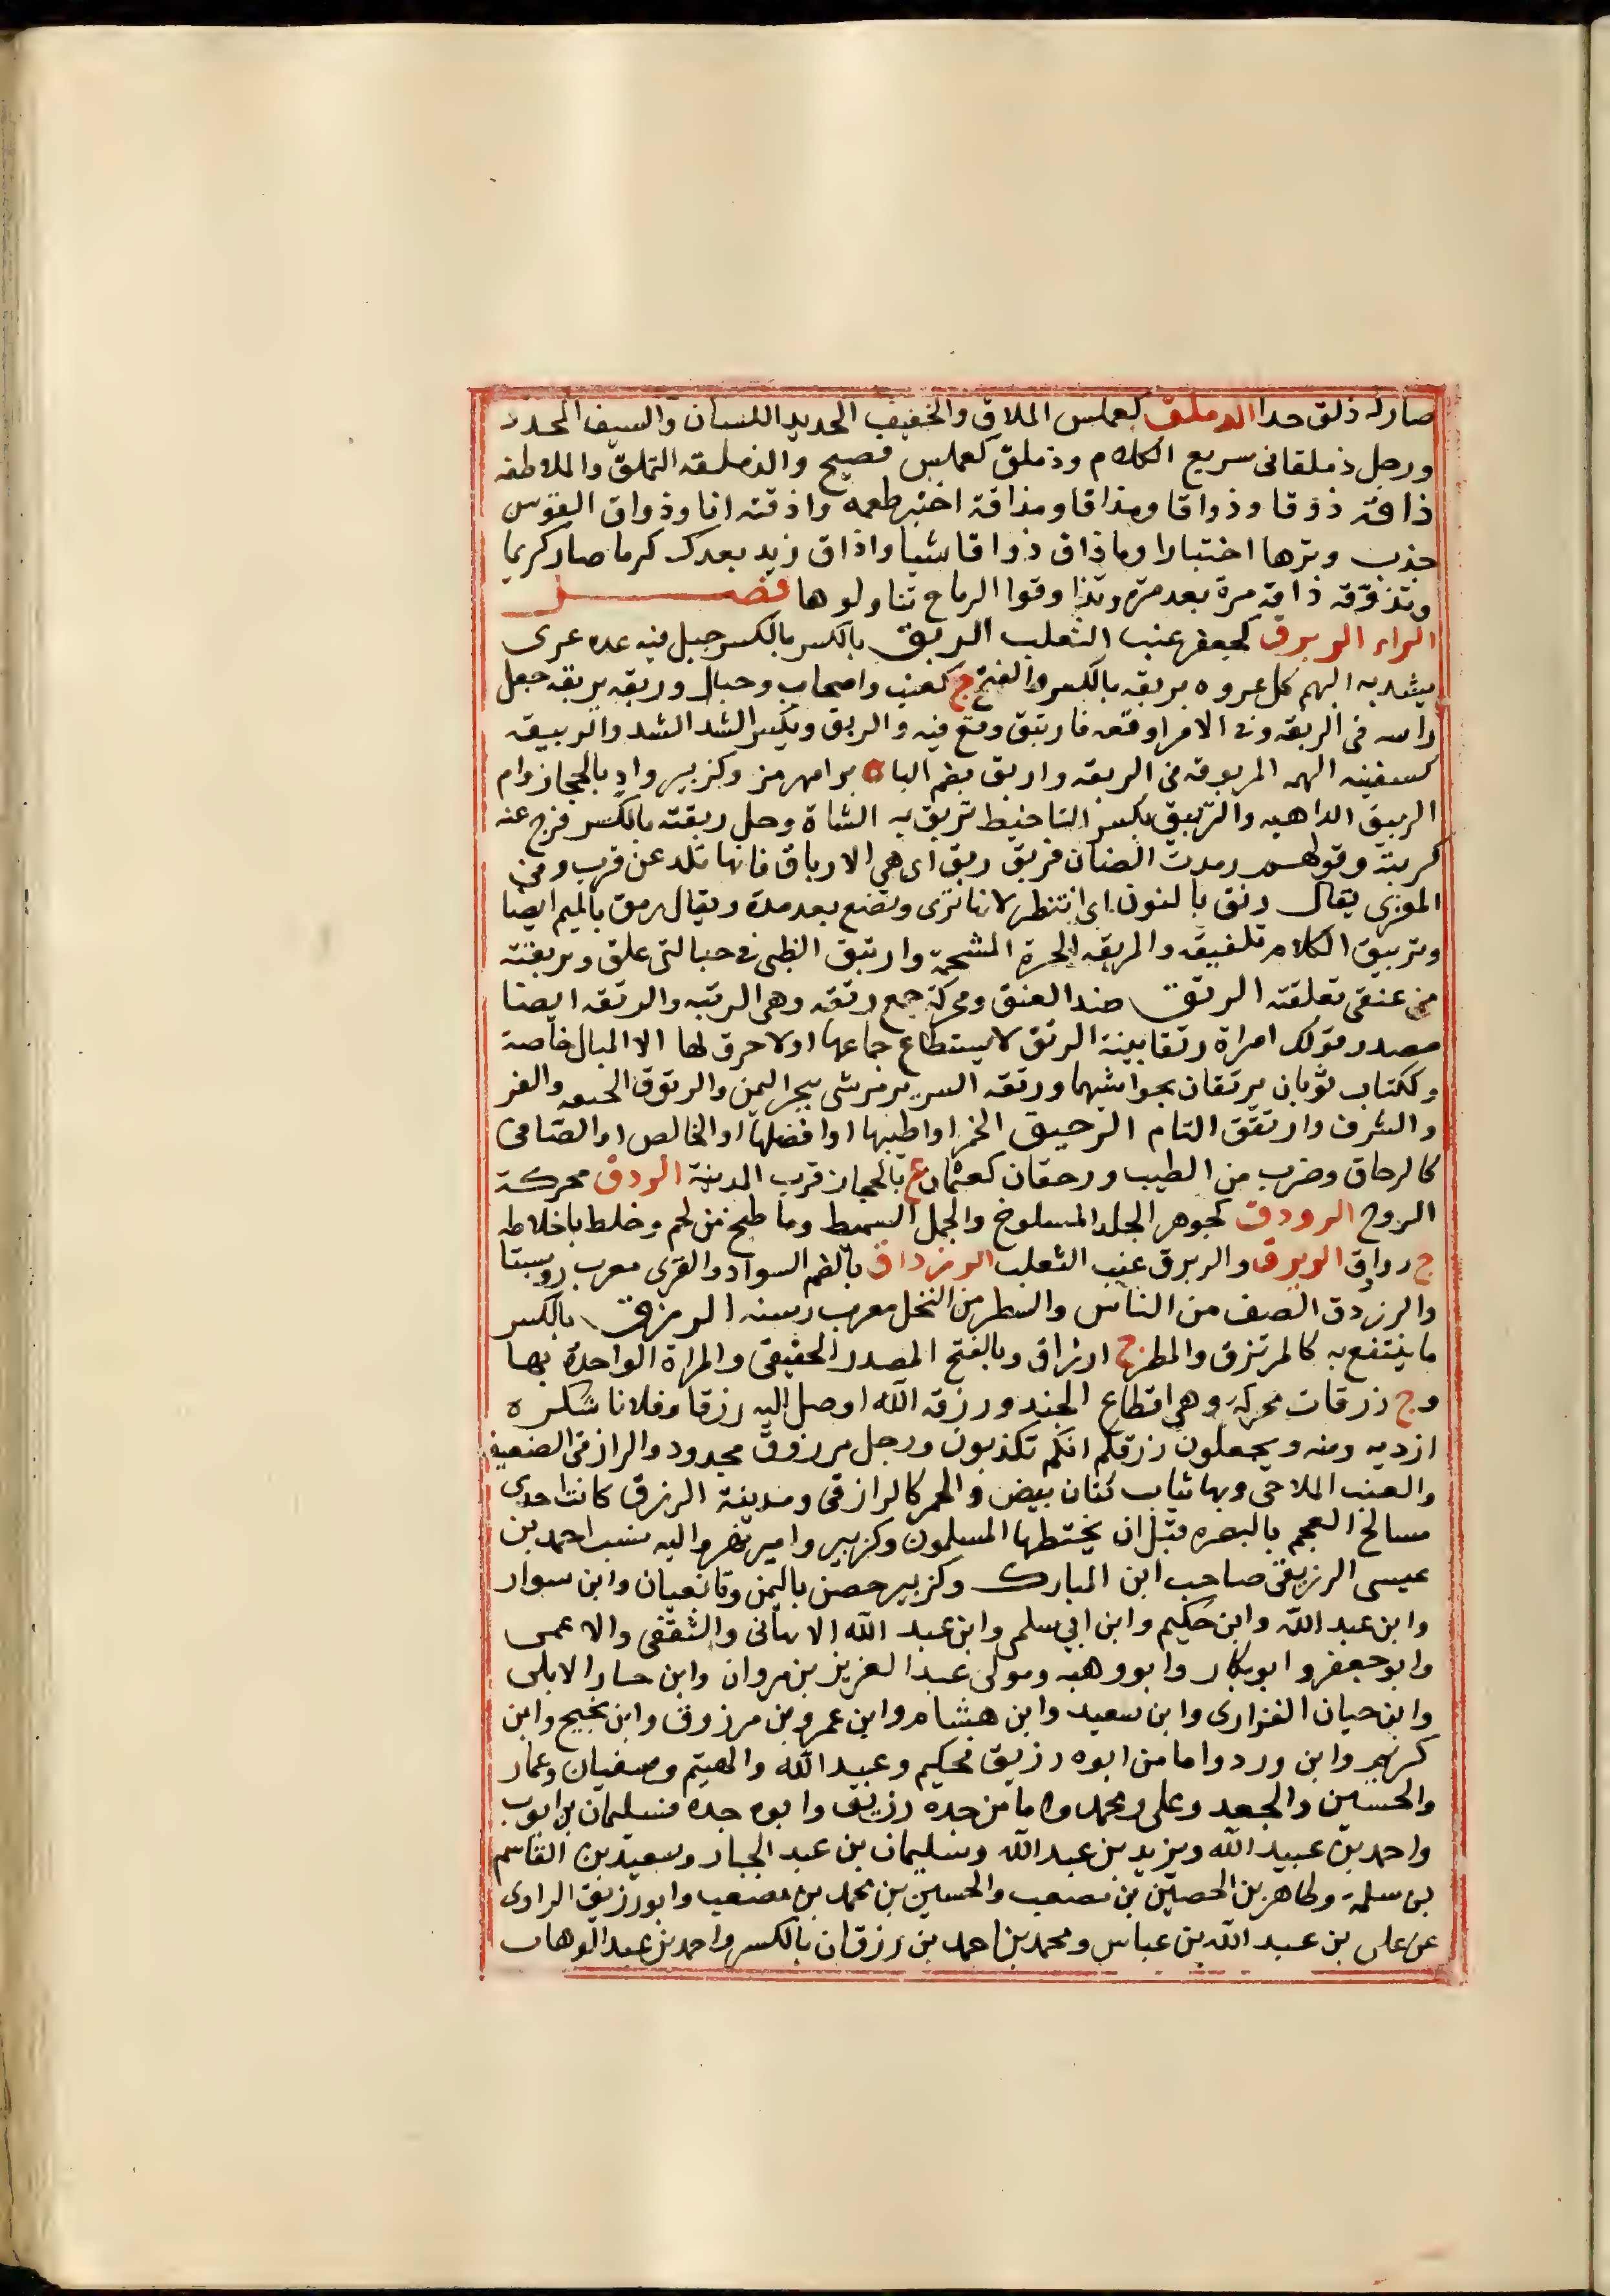 صار له ذلق حدا الذملق كعملس الملاق والخفيف الحديد اللسان والسيف المحدد
ورجل ذملقانى سريع الكلام وذملق كعملس فصيح والذملقه التملق والملاطفه
ذاقه ذوقا وذواقا ومذاقا ومذاقة اختبر طعمه واذقته انا وذواق القوس
جذب وترها اختبارا وما ذاق ذواقا شيا واذاق زيد بعدك كرما صار كريما
وتذوقه ذاقه مرة بعد مرة وتذاوقوا الرماح تناولوها فصل
الراء الربرق كجعفر عنب الثعلب الربق بالكسر بالكسر حبل فيه عده عرى
يشد به البهم كل عروه بربقه بالكسر والفتح ج كعنب واصحاب وحبال وربقه يربقه جعل
راسه فى الربقه وفى الامر اوقعه فارتبق وقع فيه والربق ويكسر الشد الشد والربيقه
كسفينه البهمه المربوقه فى الربقه واربق بضم البا ه برامهرمز وكزبير واد بالحجاز وام
الربيق الداهيه والتربيق بكسر التا خيط تربق به الشاة وحل ربقته بالكسر فرج عنه
كربته وقولهم رمدت الضنان فربق ربق اى هى الارباق فانها تلد عن قرب وفى
المعزى يقال رنق بالنون اى انتظر لانها ترى وتضع بعد مدة ويقال رمق بالميم ايضا
وتربيق الكلام تلفيقه والمربقه الخبزة المشحمة وارتبق الظبى فى حبالتى علق وتربقته
فى عنقى تعلقته الرتق ضد العنق ومحركة جمع رتقه وهى الرتبه والرتقه ايضا
مصدر قولك امراة رتقا بينة الرتق لا يستطاع جماعها اولا خرق لها الا المبال خاصة
وككتاب ثوبان يرتقان بحواشيهما ورتقه السرير مرشى ببحر اليمن والرتوق الخنعه والفر
والشرف وارتتق التام الرحيق الخمر او اطيبها او افضلها او الخالص او الصافى
كالرحاق وضرب من الطيب ورحقان كعثمان ع بالحجاز قرب المدينة الردق محركة
الردج الرودق كجوهر الجلد المسلوخ والجمل السميط وما طبخ من لحم وخلط باخلاطه
ج روادق الربرق والربرق عنب الثعلب الرزداق بالضم السواد والقرى معرب روستا
والرزدق الصف من الناس والسطر من النخل معرب رسته الرزق بالكسر
ما ينتفع به كالمرتزق والمطر ج ارزاق وبالفتح المصدر الحقيقى والمراة الواحدة بها
وج رزقات محركه وهى اقطاع الجند ورزقه الله اوصل اليه رزقا وفلانا شكره
ازديه ومنه ويجعلون رزقكم انكم تكذبون ورجل مرزوق مجدود والرازقى الضعيف
والعنب الملاحى وبها ثياب كتان بيض والخمر كالرازقى ومدينة الرزق كانت احدى
مسالح العجم بالبصره قبل ان يختطها المسلمون وكزبير وامير نهر واليه نسب احمد بن
عيسى الرزيقى صاحب ابن المبارك وكزبير حصن باليمن وتابعيان وابن سوار
وابن عبد الله وابن حكيم وابن ابى سلمى وابن عبد الله الالهانى والثقفى والاعمى
وابو جعفر وابو بكار وابو وهبه ومولى عبد العزيز بن مروان وابن حسار الابلى
وابن حيان الفزارى وابن سعيد وابن هشام وابن عمر وبن مرزوق وابن نجيح وابن
كريم وابن ورد واما من ابوه رزيق فحكيم وعبيد الله والهيثم وسفيان وعمار
والحسين والجعد وعلى ومحمد واما من جده رزيق وابو جده فسليمان بن ايوب
واحمد بن عبيد الله ويزيد بن عبد الله وسليمان بن عبد الجبار وسعيد بن القاسم
بن سلمة وطاهر بن الحصين بن مصعب والحسين بن محمد بن مصعب وابو رزيق الراوى
عن على بن عبد الله بن عباس ومحمد بن احمد بن رزقان بالكسر واحمد بن عبد الوهاب